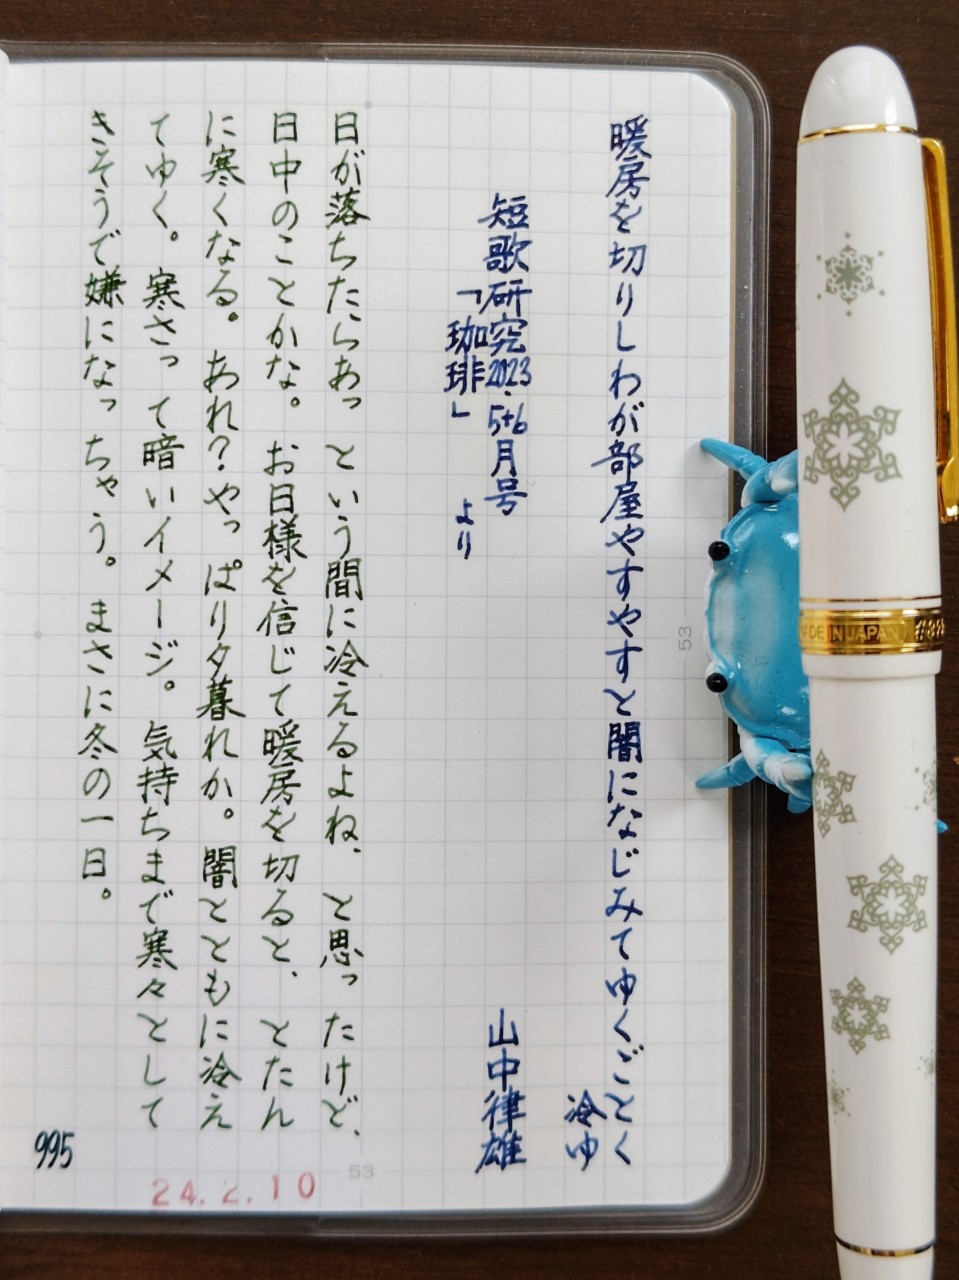 暖房を切りしわが部屋やすやすと闇になじみてゆくごとく
冷ゆ
短歌研究2023.5+6月号 山中律雄
「珈琲」 より
日が落ちたらあっという間に冷えるよね、と思ったけど、
日中のことかな。お日様を信じて暖房を切ると、とたん
に寒くなる。あれ?やっぱり夕暮れか。闇とともに冷え
てゆく。寒さって暗いイメージ。気持ちまで寒々として
きそうで嫌になっちゃう。まさに冬の一日。
995
24.2.10
53
53
MADE IN JAPAN